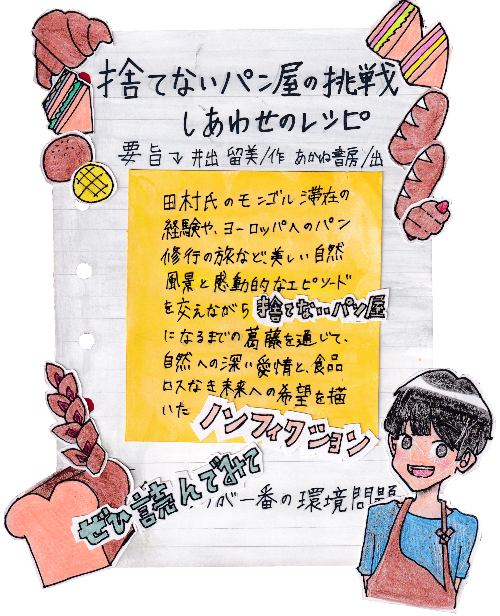 捨てないパン屋の挑戦
しあわせのレシピ
要旨↴ 井出 留美/作 あかね書房/出
田村氏のモンゴル滞在の
経験や、ヨーロッパへのパン
修行の旅など美しい自然
風景と感動的なエピソード
を交えながら捨てないパン屋
になるまでの葛藤を通じて、
自然への深い愛情と、食品
ロスなき未来への希望を描
いた ノンフィクション
ぜひ読んでみて
が一番の環境問題